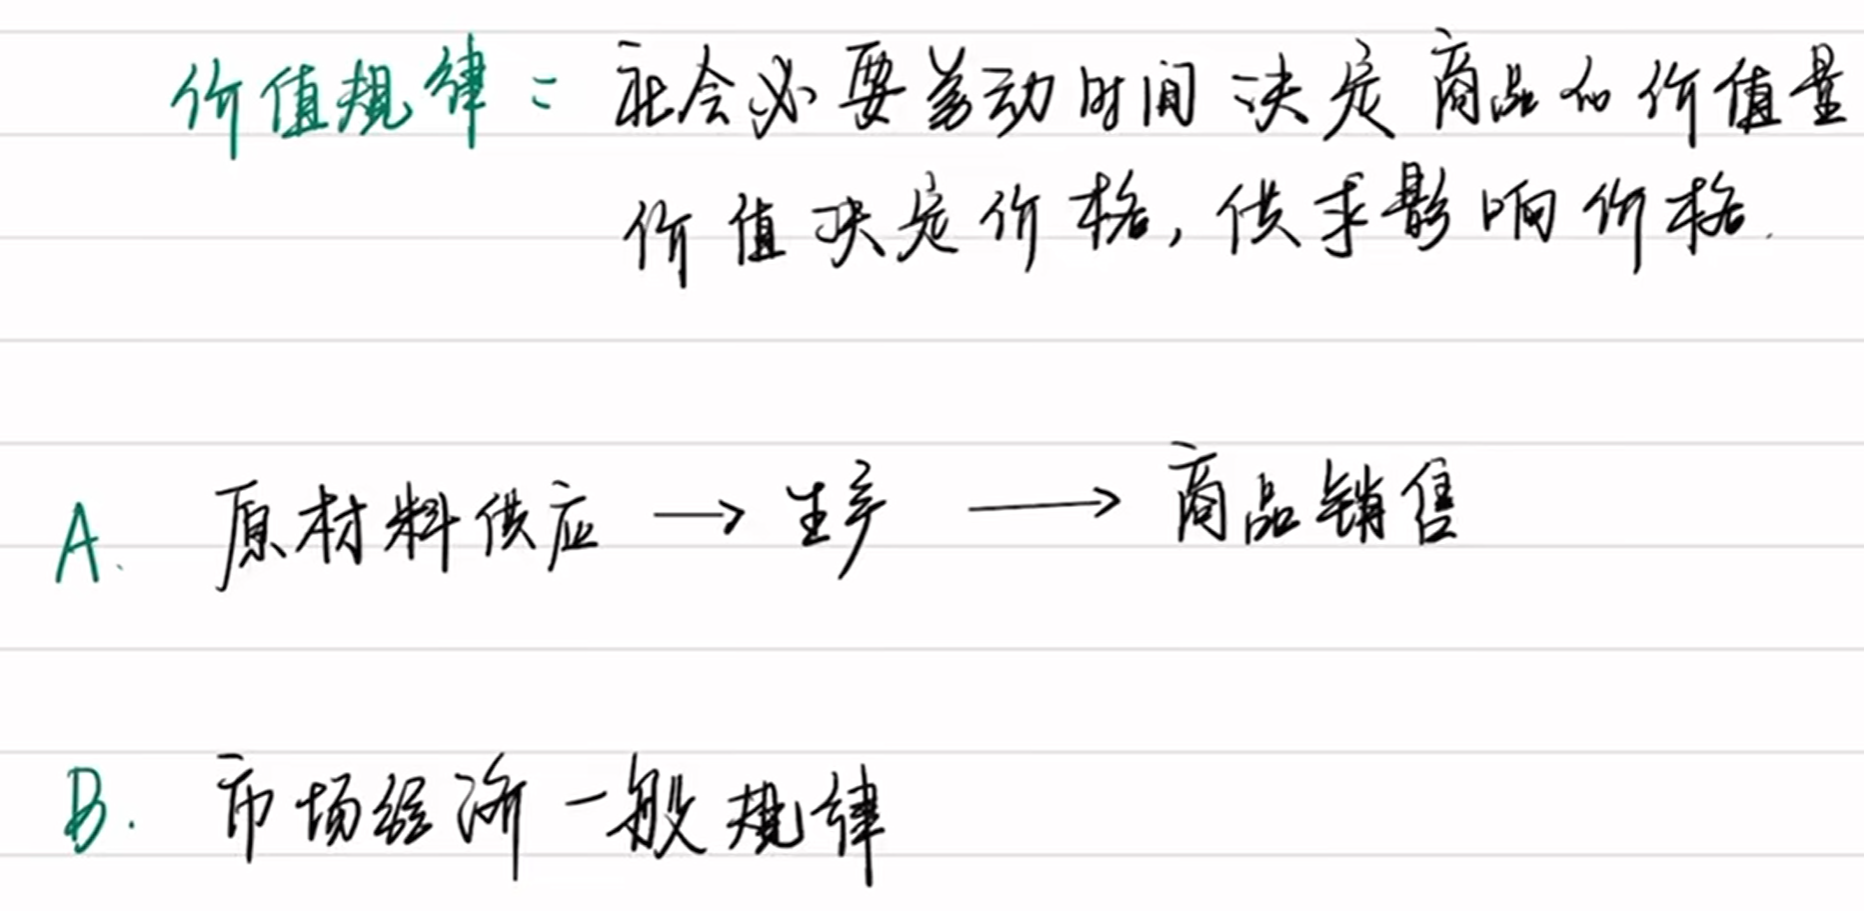 价值规律：社会必要劳动时间决定商品的价值量
价值决定价格，供求影响价格.
A. 原材料供应 → 生产 → 商品销售
B. 市场经济一般规律